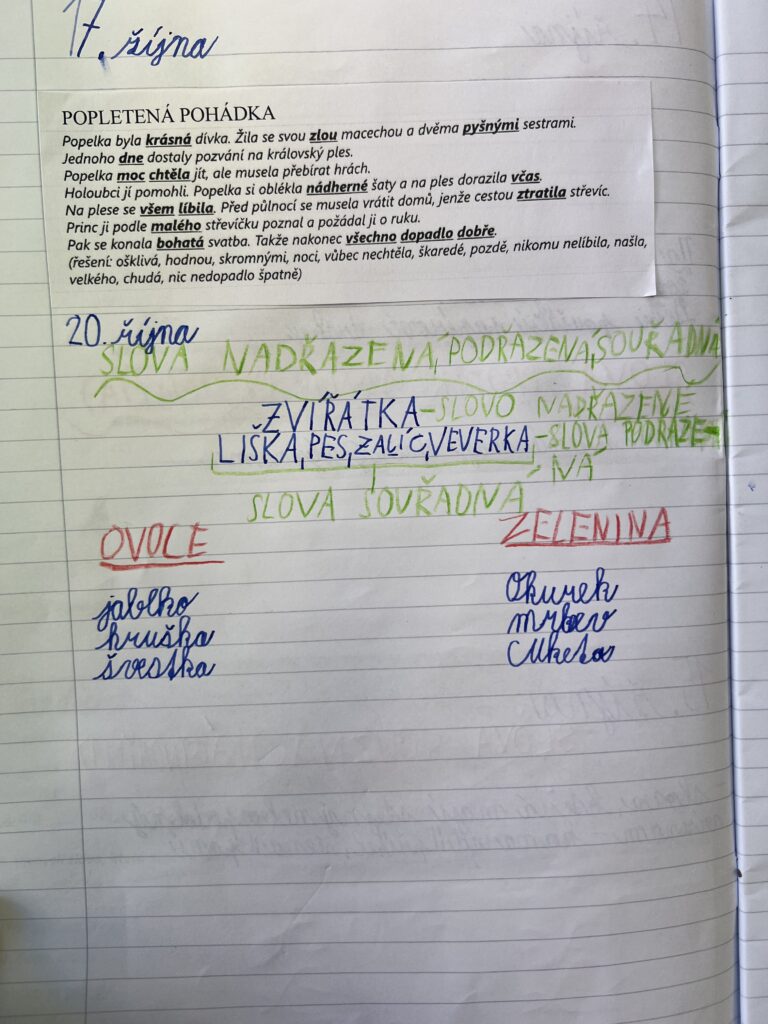 17. října
POPLETENÁ POHÁDKA
Popelka byla krásná dívka. Žila se svou zlou macechou a dvěma pyšnými sestrami.
Jednoho dne dostaly pozvání na královský ples.
Popelka moc chtěla jít, ale musela přebírat hrách.
Holoubci jí pomohli. Popelka si oblékla nádherné šaty a na ples dorazila včas.
Na plese se všem líbila. Před půlnocí se musela vrátit domů, jenže cestou ztratila střevíc.
Princ ji podle malého střevíčku poznal a požádal ji o ruku.
Pak se konala bohatá svatba. Takže nakonec všechno dopadlo dobře.
(řešení: ošklivá, hodnou, skromnými, noci, vůbec nechtěla, škaredé, pozdě, nikomu nelíbila, našla,
velkého, chudá, nic nedopadlo špatně)
20. října
SLOVA NADŘAZENÁ, PODŘAZENÁ, SOUŘADNÁ
ZVÍŘÁTKA-SLOVO NADŘAZENÉ
LIŠKA, PES, ZALÍC, VEVERKA,-SLOVA PODŘAZE-
-NÁ
SLOVA SOUŘADNÁ
OVOCE ZELENINA
jablko Okurek
hruška mrkev
švestka Cuketa